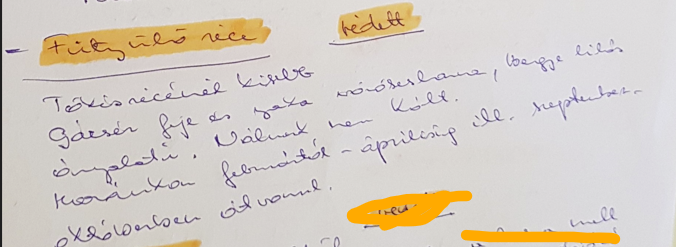 - Fütyülő réce védett
Tőkésrécénél kisebb
Gácsér feje és nyaka vörösesbarna, begye lilás
árnyalatú. Nálunk nem költ.
Hazánkon februártól - áprilisig ill. szeptember-
októberben átvonul.
a mell